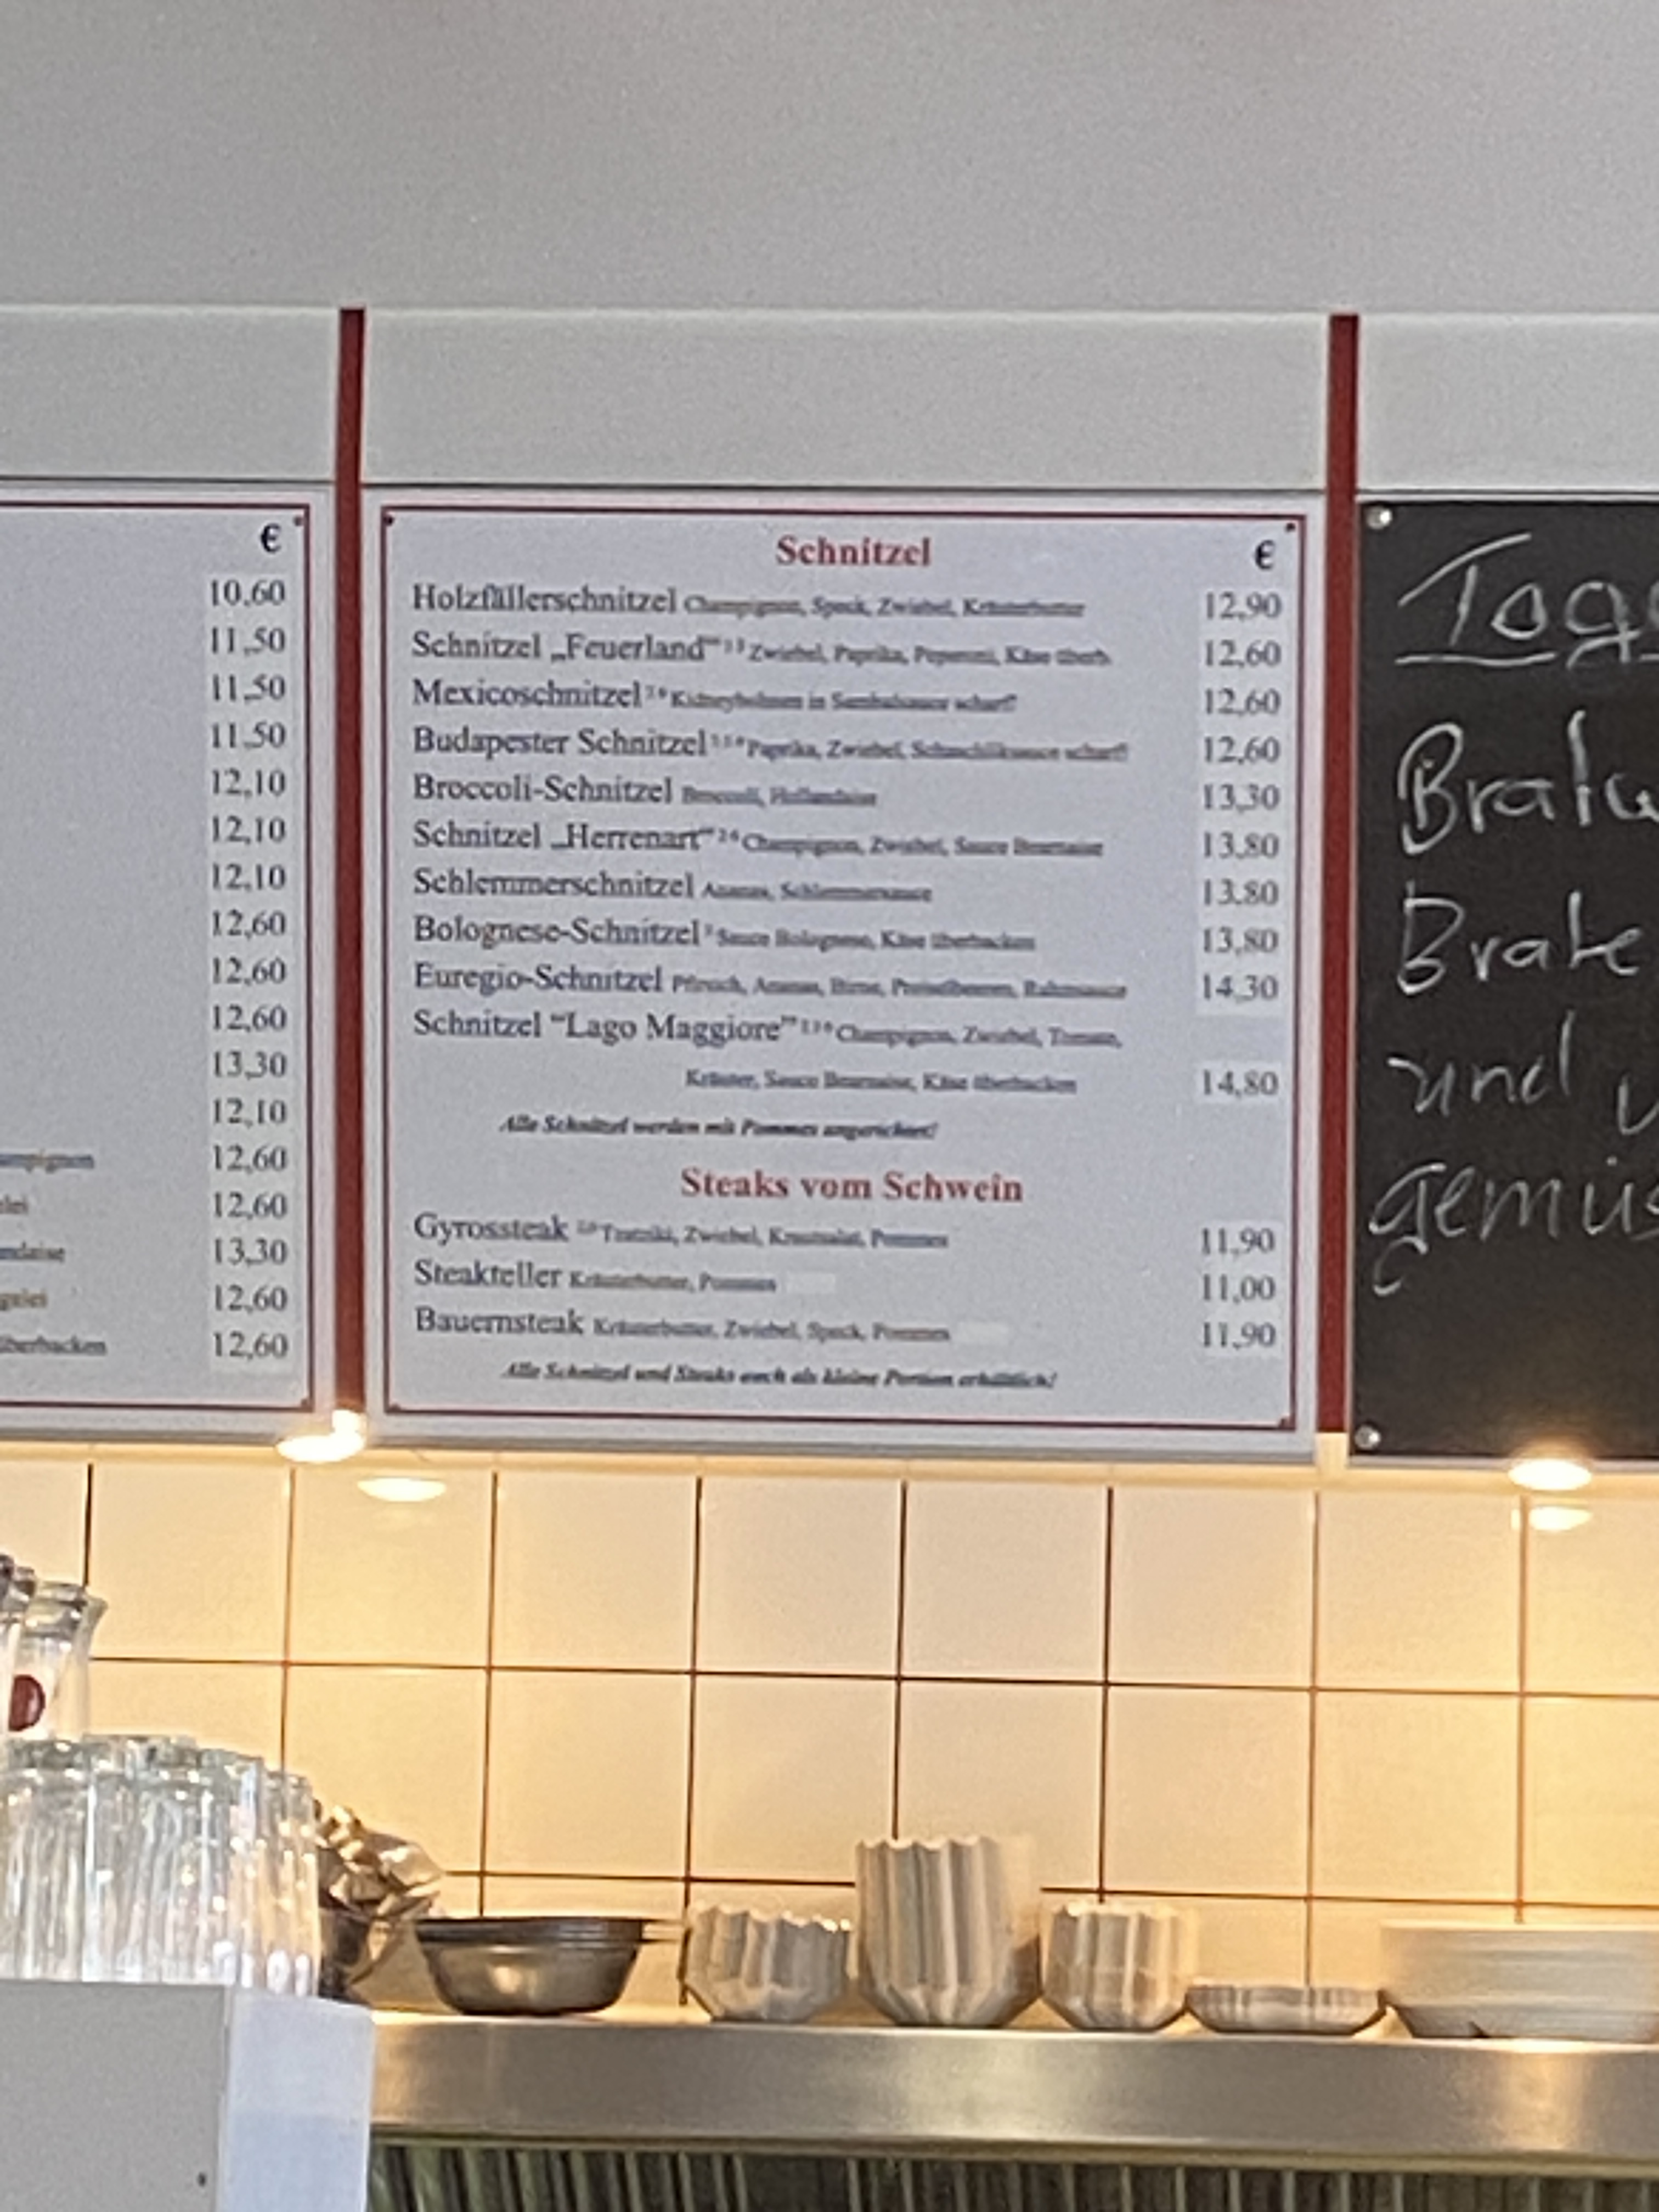 €
10,60
11,50
11,50
11,50
12,10
12,10
12,10
12,60
12,60
12,60
13,30
12,10
12,60
12,60
13,30
12,60
überbacken 12,60
Schnitzel €
Holzfällerschnitzel Champignon, Speck, Zwiebel, Kräuterbutter 12,90
Schnitzel „Feuerland“ Zwiebel, Paprika, Peperoni, Käse überb. 12,60
Mexicoschnitzel Kidneybohnen in Sambalsauce scharf! 12,60
Budapester Schnitzel Paprika, Zwiebel, Schaschliksauce scharf! 12,60
Broccoli-Schnitzel Broccoli, Hollandaise 13,30
Schnitzel „Herrenart“ Champignon, Zwiebel, Sauce Bearnaise 13,80
Schlemmerschnitzel Ananas, Schlemmersauce 13,80
Bolognese-Schnitzel Sauce Bolognese, Käse überbacken 13,80
Euregio-Schnitzel Pfirsich, Ananas, Birne, Preiselbeeren, Rahmsauce 14,30
Schnitzel “Lago Maggiore” Champignon, Zwiebel, Tomate,
Kräuter, Sauce Bearnaise, Käse überbacken 14,80
Alle Schnitzel werden mit Pommes angerichtet!
Steaks vom Schwein
Gyrossteak Tzatziki, Zwiebel, Krautsalat, Pommes 11,90
Steakteller Kräuterbutter, Pommes 11,00
Bauernsteak Kräuterbutter, Zwiebel, Speck, Pommes 11,90
Alle Schnitzel und Steaks auch als kleine Portion erhältlich!
Tage
Bratw
Brate
und
gemüs